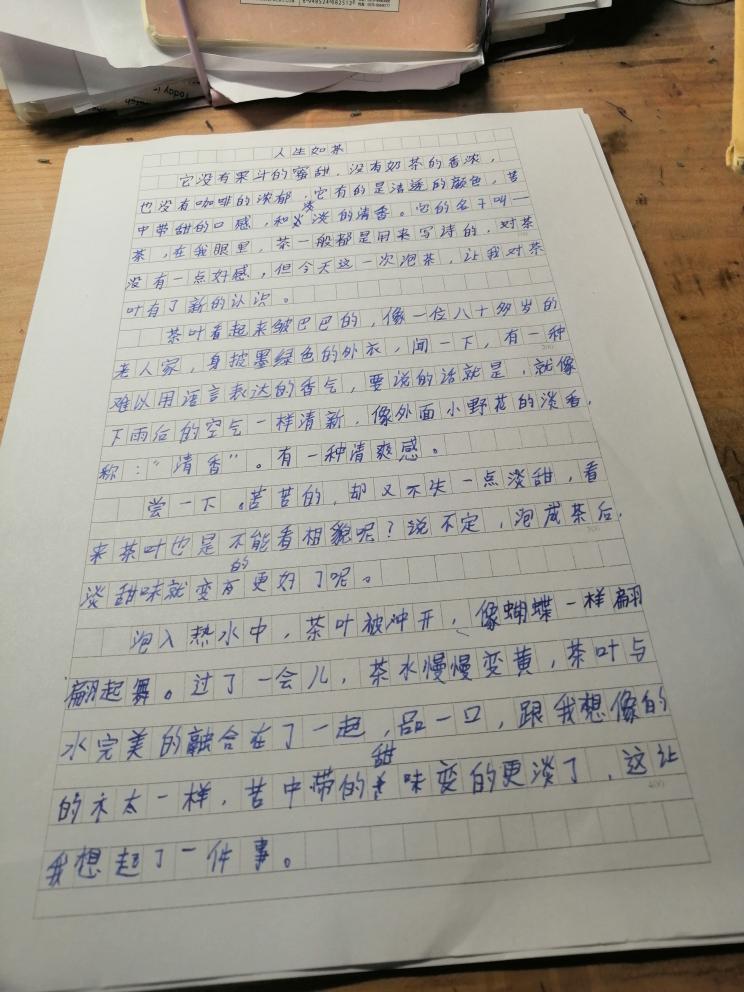 6948524682512
Today in
人生如茶
它没有果汁的蜜甜，没有奶茶的香浓，
也没有咖啡的浓郁，它有的是清透的颜色，苦
中带甜的口感，和淡淡的清香。它的名字叫一
茶，在我眼里，茶一般都是用来写诗的，对茶
没有一点好感，但今天这一次泡茶，让我对茶
叶有了新的认识。
茶叶看起来皱巴巴的，像一位八十多岁的
老人家，身披墨绿色的外衣，闻一下，有一种
难以用语言表达的香气，要说的话就是，就像
下雨后的空气一样清新，像外面小野花的淡香，
称：“清香”。有一种清爽感。
尝一下。苦苦的，却又不失一点淡甜，看
来茶叶也是不能看相貌呢？说不定，泡成茶后，
淡甜味就变的更好了呢。
泡入热水中，茶叶被冲开，像蝴蝶一样翩
翩起舞。过了一会儿，茶水慢慢变黄，茶叶与
水完美的融合在了一起，品一口，跟我想像的
的不太一样，苦中带的甜味变的更淡了，这让
400
我想起了一件事。